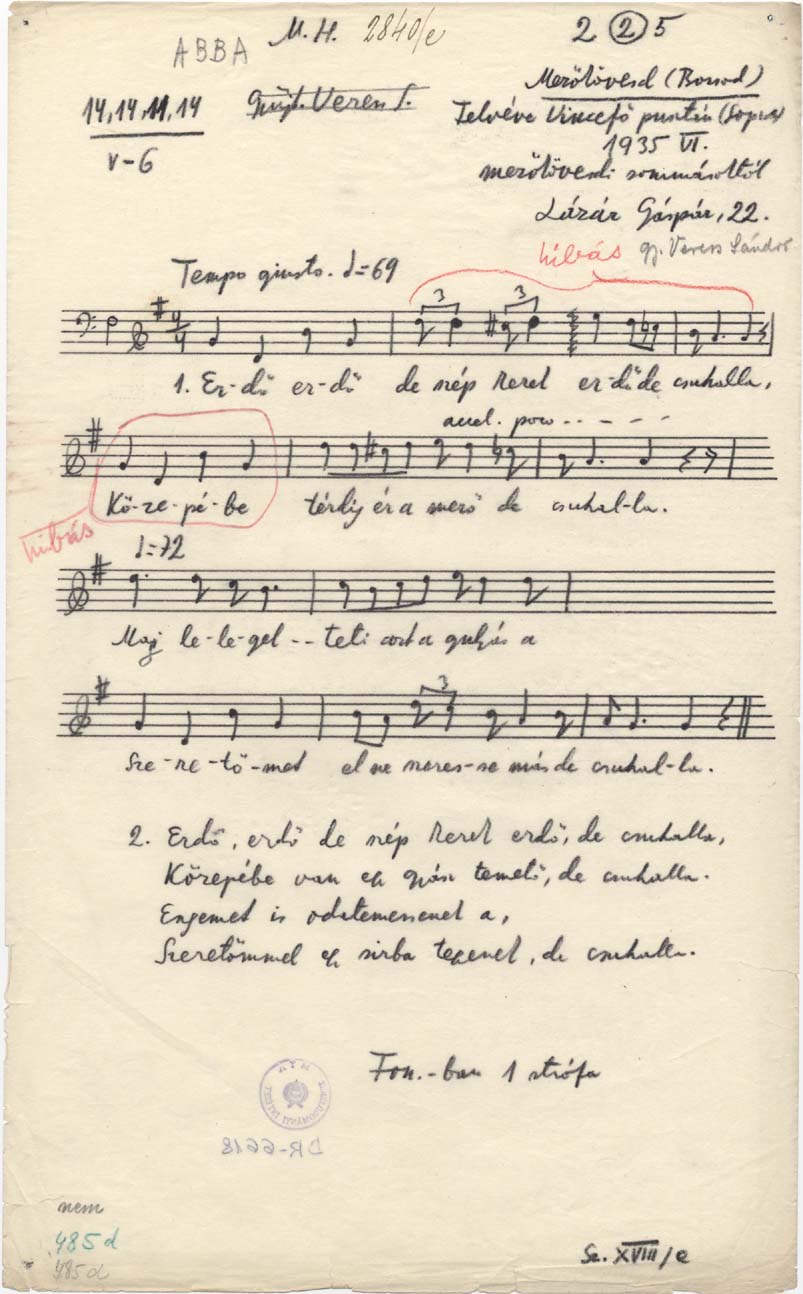 M. H. 2840/e
2 2 5
ABBA
14, 14, 11, 14
Gyűjt. Veress S.
Mezőkövesd (Borsod)
v-6
Felvéve Vincefő pusztán (Sopron)
1935 VI.
mezőkövesdi sommásoktól
Lázár Gáspár, 22.
hibás gy. Veress Sándor
Tempo giusto. = 69
3 3
1. Er-dő er-dő de szép kerek erdő de csuhalla,
accel. poco - - - - -
Kö-ze-pé-be térdig ér a mező de csuhal-la.
hibás
= 72
Maj le-le-gel -- teti azt a gulyás a
3
Sze-re-tő-met el ne keres-se más de csuhal-la.
2. Erdő, erdő de szép kerek erdő, de csuhalla,
Közepébe van egy gyász temető, de csuhalla.
Engemet is oda temessenek a,
Szeretőmmel egy sirba tegyenek, de csuhalla.
Fon.-ban 1 strófa
DR-6618
nem
485 d
485 d
Sz. XVIII/e